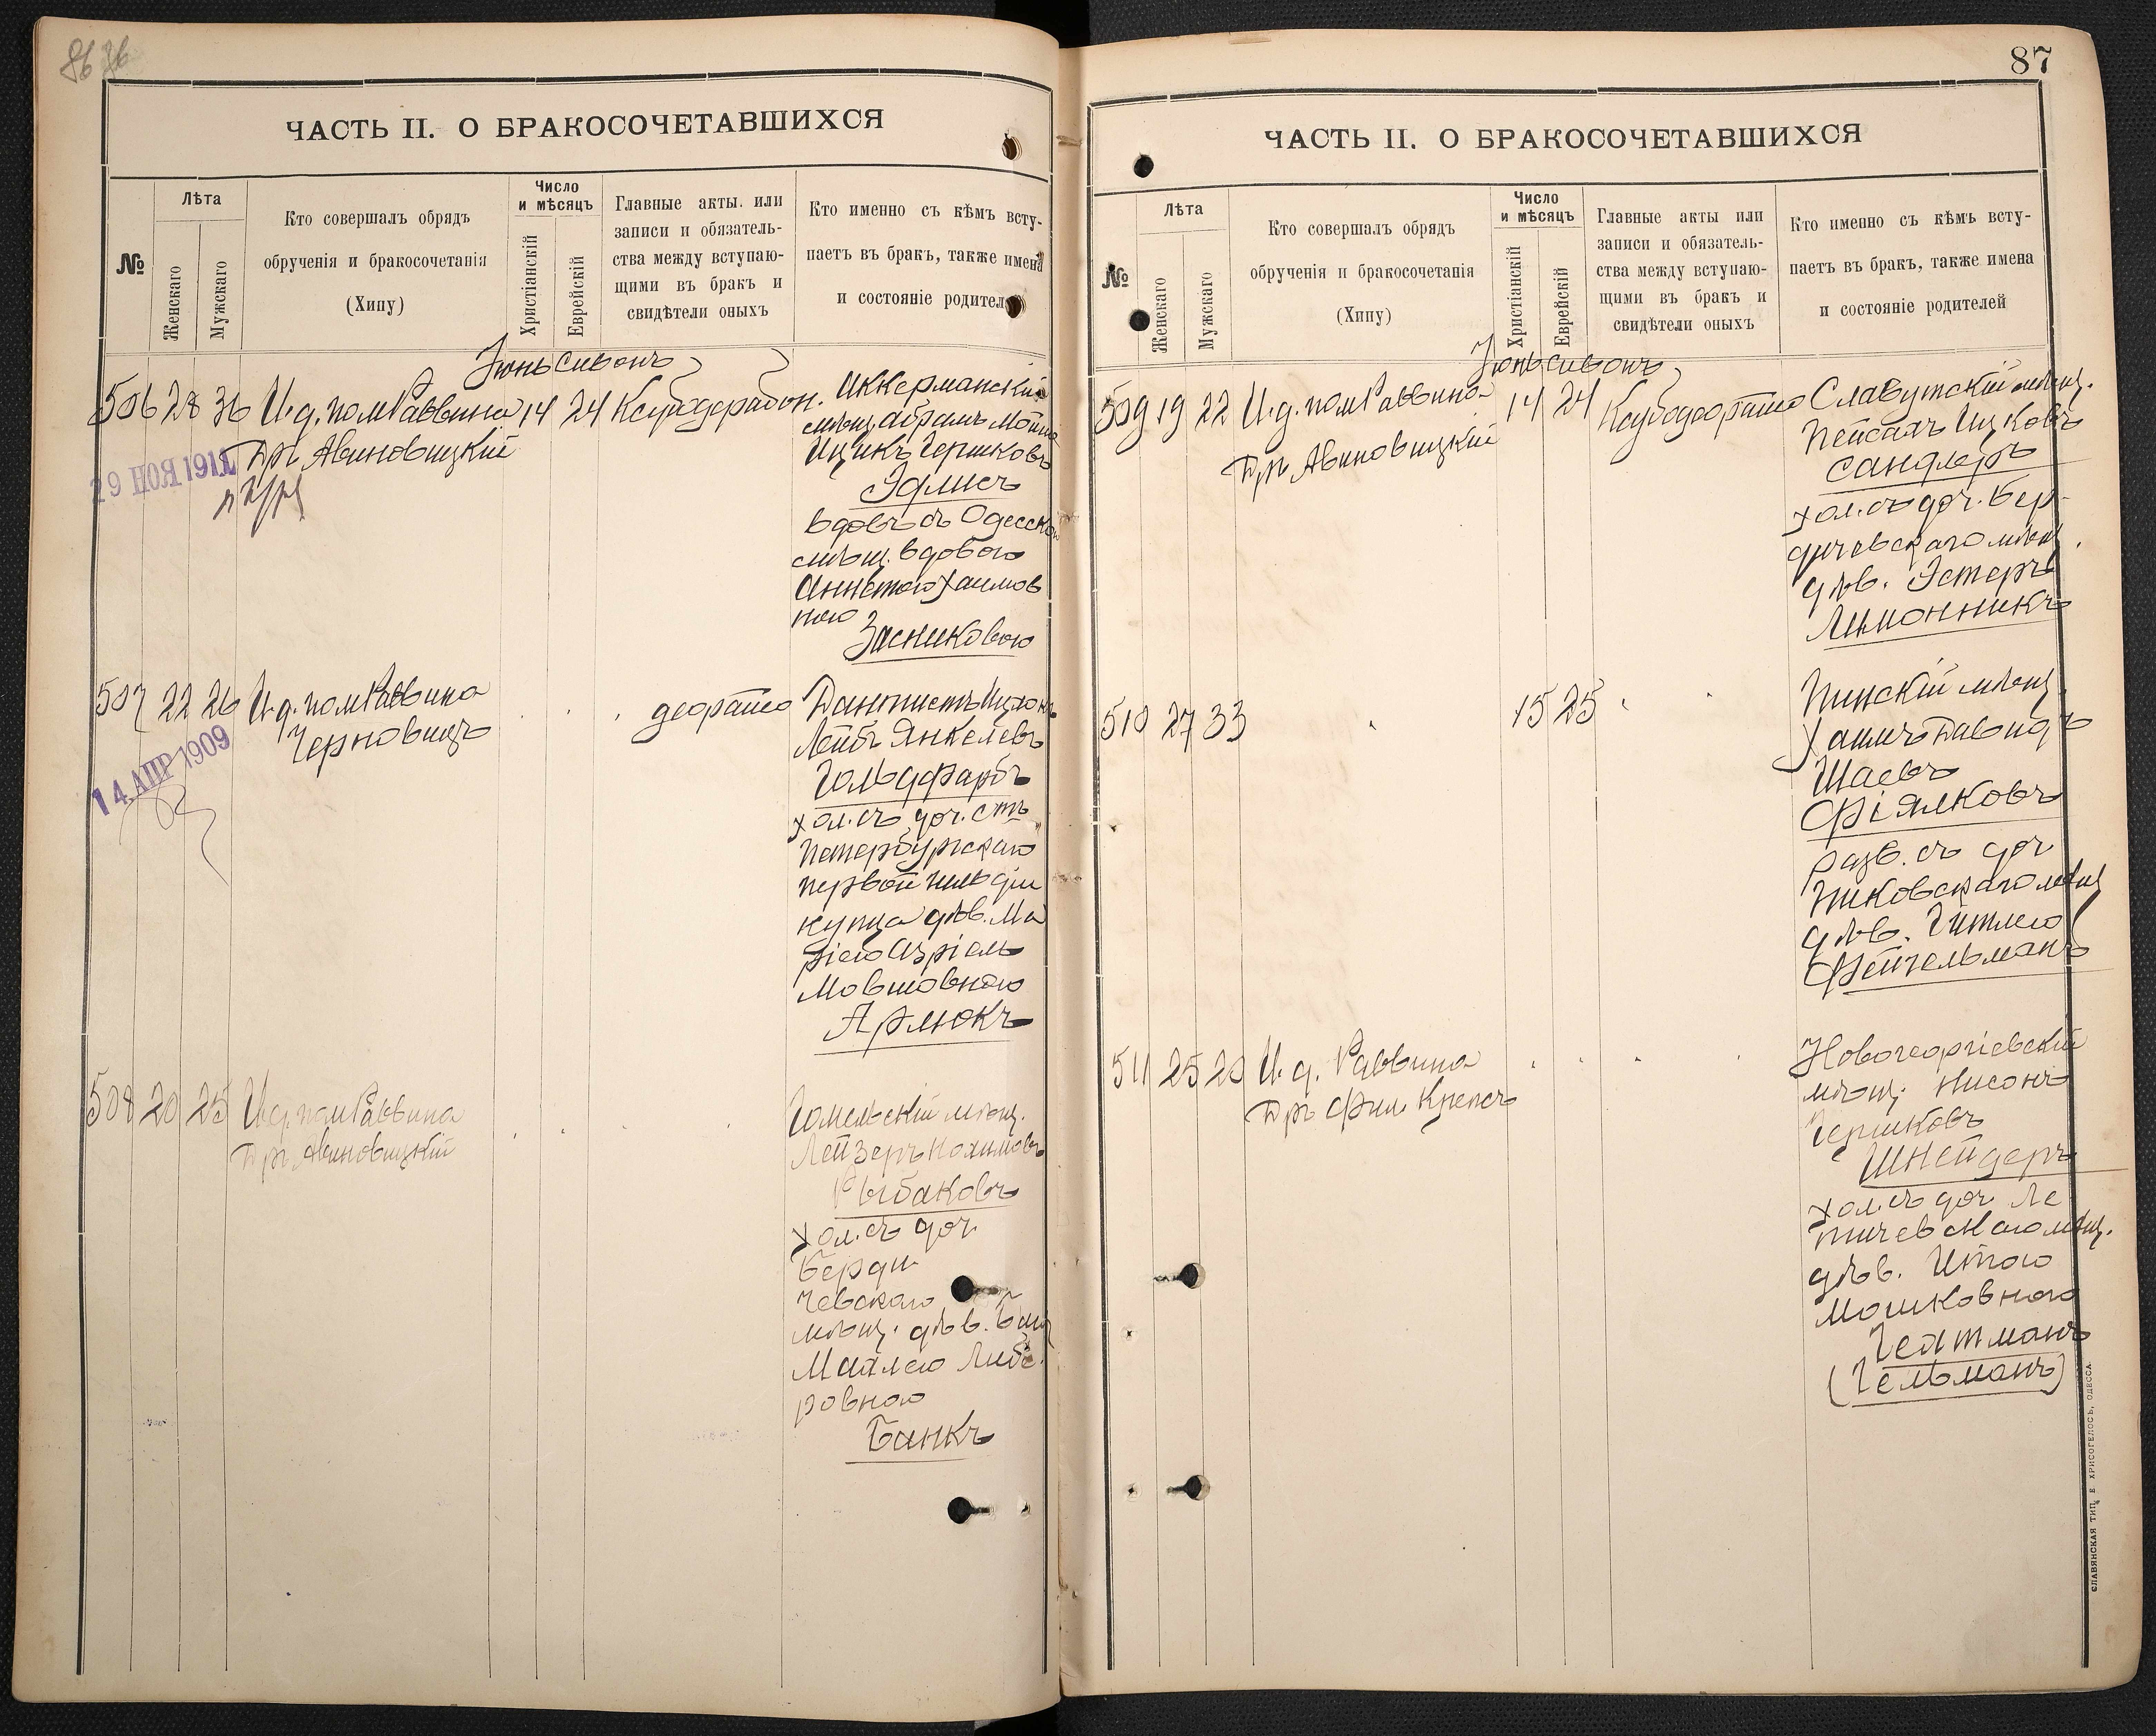 86
ЧАСТЬ II. О БРАКОСОЧЕТАВШИХСЯ
№
Лѣта
Женскаго
Мужскаго
Кто совершалъ обрядъ
обрученія и бракосочетанія
(Хипу)
Число
и мѣсяцъ
Христіанскій
Еврейскій
Главные акты. или
записи и обязатель-
ства между вступаю-
щими въ бракъ и
свидѣтели оныхъ
Кто именно съ кѣмъ всту-
паетъ въ бракъ, также имена
и состояніе родител
Іюнь Сивонъ
506 28 36 И. д. пом Раввина 14 24
Дръ Авиновицкій
29 НОЯ 1911
Аккерманскій
мѣщ Абрамъ Мотя
Ицикъ Гершковъ
Эдлисъ
вдовъ съ Одесско
мѣщ. вдовою
Аннетою Хаимов
ною
Засниковою
507 22 26 И. д. пом Раввина
Черновицъ
14 АПР 1909
Дантистъ
Лейбъ Янкелевъ
Гольдфарбъ
хол. съ доч. Стъ
Петербургскаго
первой гильдіи
купца дѣв. Ма
ріею Азріель
Мовшовною
Арлюкъ
508 20 25 И. д. пом Раввина
Дръ Авиновицкій
Гомельскій мѣщ.
Лейзеръ Нохимовъ
Рыбаковъ
хол. съ доч.
Берди
чевскаго
мѣщ. дѣв.
Маялею Либе
ровною
Банкъ
87
ЧАСТЬ II. О БРАКОСОЧЕТАВШИХСЯ
№
Лѣта
Женскаго
Мужскаго
Кто совершалъ обрядъ
обрученія и бракосочетанія
(Хипу)
Число
и мѣсяцъ
Христіанскій
Еврейскій
Главные акты или
записи и обязатель-
ства между вступаю-
щими въ бракъ и
свидѣтели оныхъ
Кто именно съ кѣмъ всту-
паетъ въ бракъ, также имена
и состояніе родителей
Іюнь Сивонъ
509 19 22 И. д. пом Раввина 14 24
Дръ Авиновицкій
Славутскій мѣщ.
Пейсахъ Ицковъ
Сандлеръ
хол. съ доч. Бер-
дичевскаго мѣщ.
дѣв. Эстеръ
Лимонникъ
510 27 33 15 25
Пинскій мѣщ.
Хаимъ Давидъ
Шаевъ
Фіялковъ
разв. съ доч
Пиковскаго мѣщ
дѣв. Гитлею
Фейгельманъ
511 25 25 И. д. Раввина
Дръ Фил. Крепсъ
Новогеоргіевскій
мѣщ. Нисонъ
Гершковъ
Шнейдеръ
хол. съ доч Ле
тичевскаго мѣщ.
дѣв. Итою
Мошковною
Гехтманъ
(Гельманъ)
СЛАВЯНСКАЯ ТИП. Е ХРИСОГЕЛОСЪ, ОДЕССА.